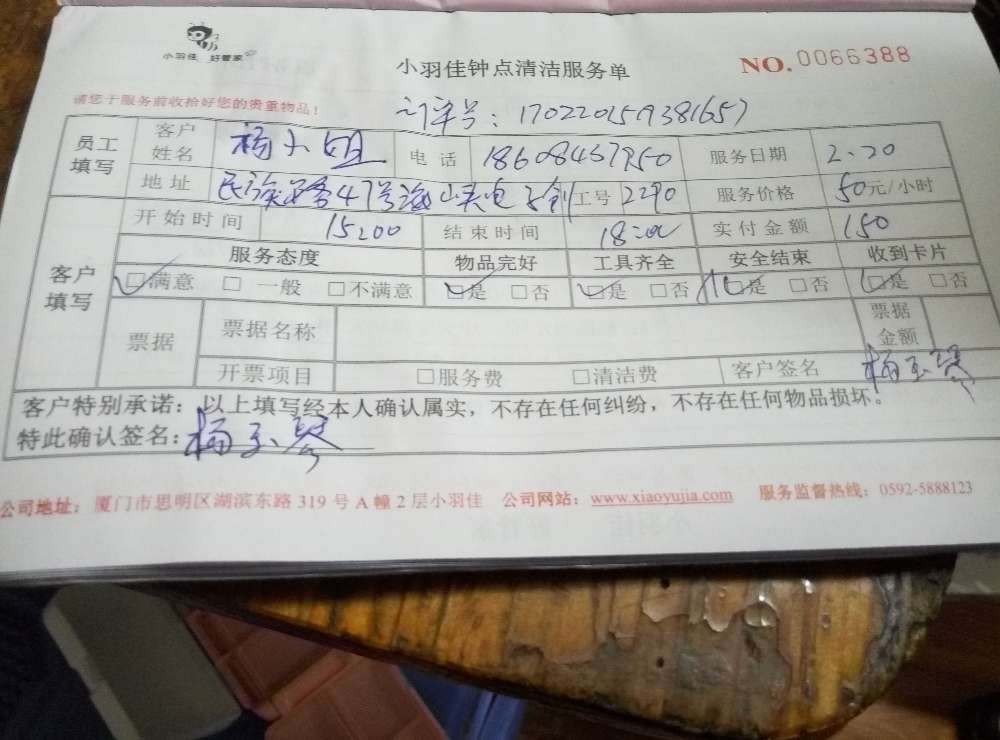 小羽佳 好管家
小羽佳钟点清洁服务单 NO. 0066388
请您于服务前收拾好您的贵重物品！
订单号：
员工填写 客户姓名 杨小姐 电话 服务日期 2.20
地址 民族路47号 工号 2290 服务价格 50元/小时
客户填写 开始时间 15:00 结束时间 18:00 实付金额 150
服务态度 物品完好 工具齐全 安全结束 收到卡片
□满意 □一般 □不满意 □是 □否 □是 □否 □是 □否 □是 □否
票据 票据名称 票据金额
开票项目 □服务费 □清洁费 客户签名 杨玉琴
客户特别承诺：以上填写经本人确认属实，不存在任何纠纷，不存在任何物品损坏。
特此确认签名：杨玉琴
公司地址：厦门市思明区湖滨东路 319 号 A 幢 2 层小羽佳 公司网站：www.xiaoyujia.com 服务监督热线：0592-5888123